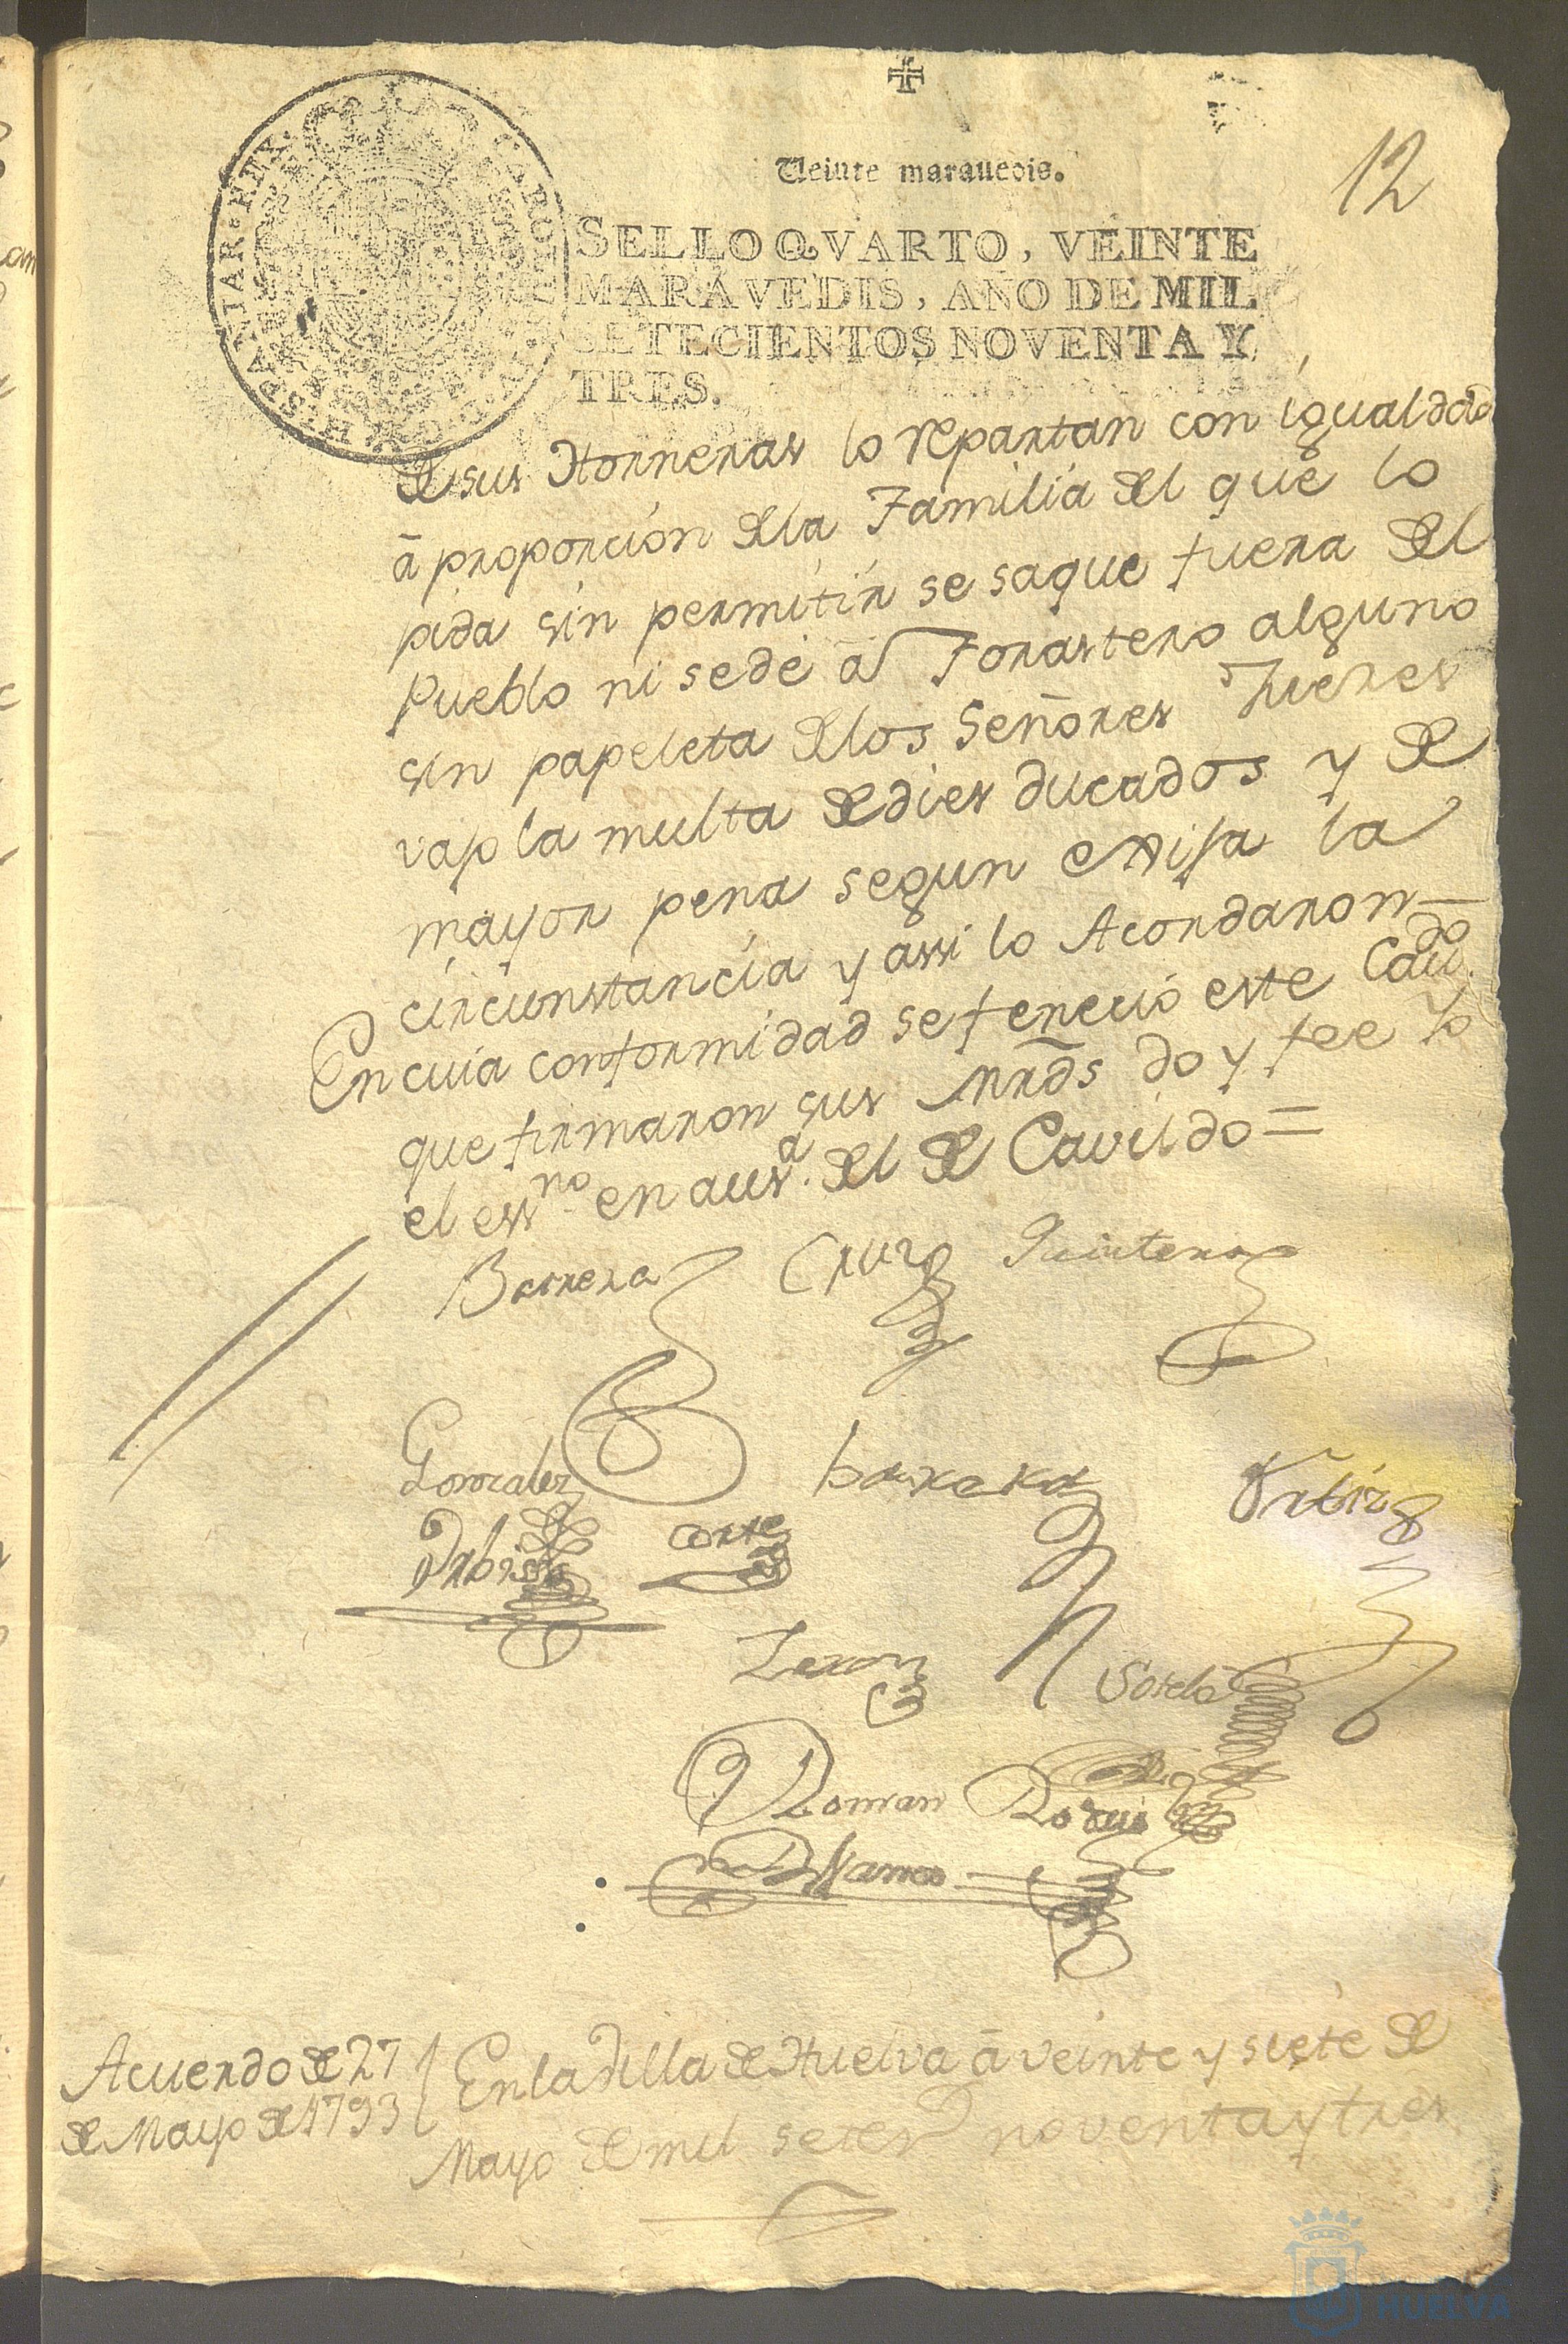 Veinte maravedis.
12
SELLO QVARTO, VEINTE
MARAVEDIS, AÑO DE MIL
SETECIENTOS NOVENTA Y
TRES.
de sus Horneras lo repartan con igualdad
â proporcion dela Familia del que lo
pida sin permitir se saque fuera del
Pueblo ni se dé â Forastero alguno
sin papeleta delos Señores Jueses
vajo la multa de dies ducados y de
mayor pena segun exija la
circunstancia y assi lo Acordaron
En cuia conformidad se feneció este Cavdo.
que firmaron sus Mrds doy fee Yo
el essno. en ausa. del de Cavildo =
Barrera Cruz Quintero
Gonzalez barrera Ortiz
Cortes
Sotelo
Roman
Acuerdo de 27
de Mayo de 1793
En la Villa de Huelva â veinte y siete de
Mayo de mil setes noventa y tres
HUELVA